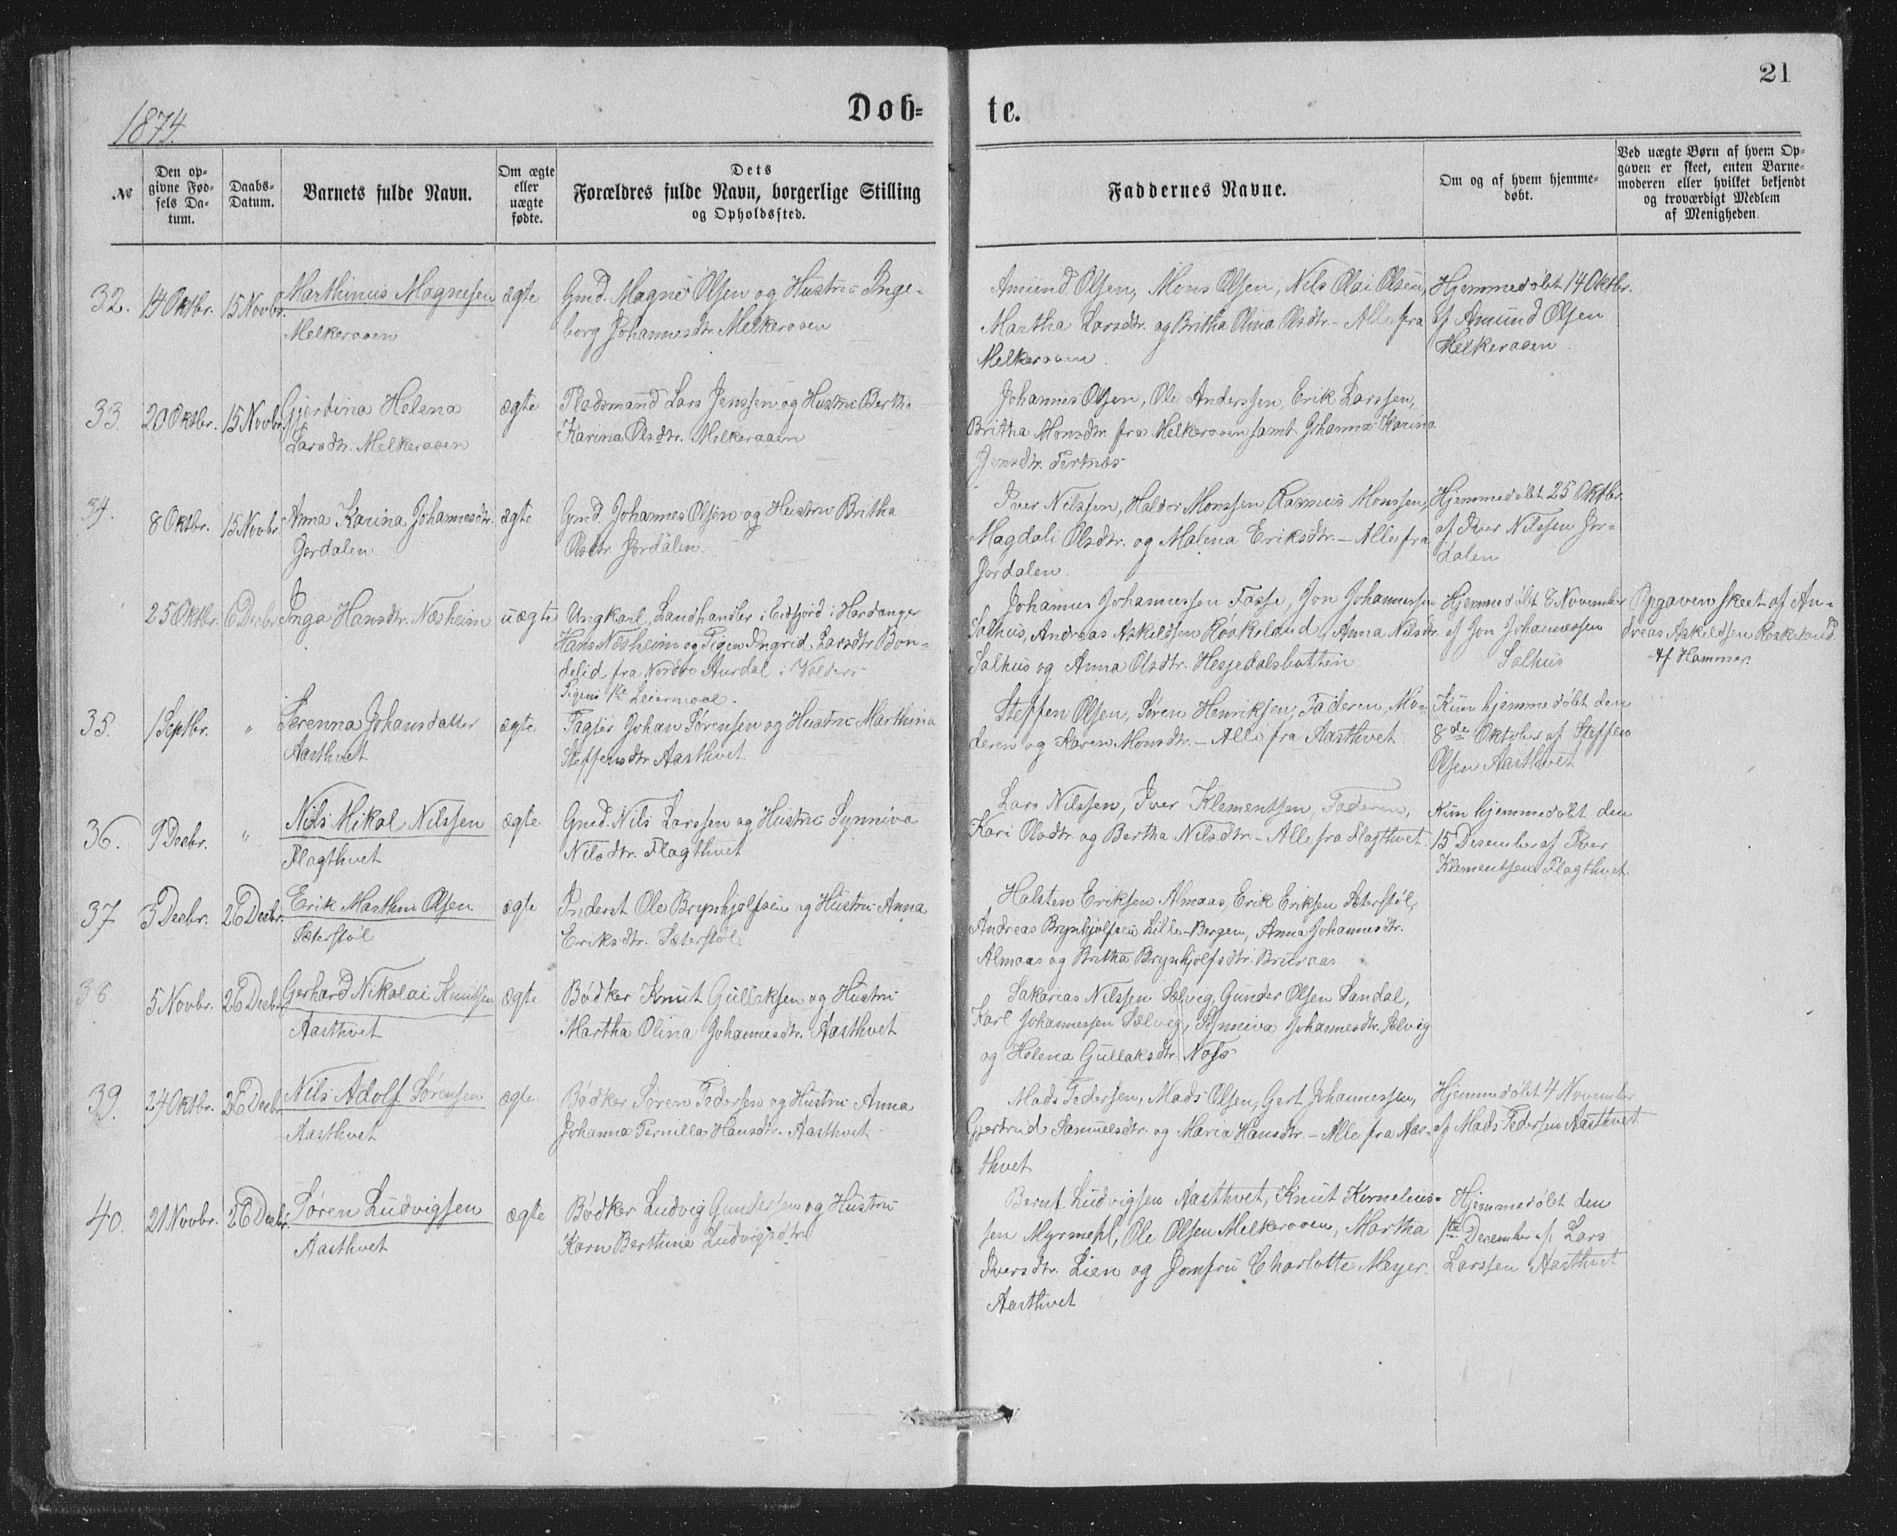 21
1874.
Døb-
te.
№
Den op-
givne Fød-
sels Da-
tum.
Daabs-
Datum.
Barnets fulde Navn.
Om ægte
eller
uægte
fødte.
Dets
Forældres fulde Navn, borgerlige Stilling
og Opholdssted.
Faddernes Navne.
Om og af hvem hjemme-
døbt.
Ved uægte Børn af hvem Op-
gaven er skeet, enten Barne-
moderen eller hvilket bekjendt
og troværdigt Medlem
af Menigheden.
32. 14 Oktbr. 15 Novbr.
Marthinus Magnesen
Melkeraaen
ægte
Gmd. Magne Olsen og Hustru Inge-
borg Johannesdtr. Melkeraaen
Amund Olsen, Mons Olsen, Nils Olai Olsen,
Martha Larsdtr. og Britha Olina Olsdtr. – Alle fra
Melkeraaen.
Hjemmedøbt 14 Oktbr.
af Amund Olsen
Melkeraaen.
33. 20 Oktbr. 15 Novbr.
Gjertina Helena
Larsdtr. Melkeraaen
ægte
Pladsmand Lars Jenssen og Hustru Bertha
Karina Olsdtr. Melkeraaen
Johannes Olsen, Ole Anderssen, Erik Larssen,
Britha Monsdtr. fra Melkeraaen samt Johanna Karina
Jensdtr. Tertnæs
34. 8 Oktbr. 15 Novbr.
Anna Karina Johannesdtr.
Jordalen
ægte
Gmd. Johannes Olsen og Hustru Britha
Olsdtr. Jordalen.
Iver Nilssen, Haldor Monssen, Rasmus Monssen,
Magdali Olsdtr. og Malena Eriksdtr. – Alle fra
Jordalen.
Hjemmedøbt 25 Oktbr.
af Iver Nilssen Jor-
dalen
25 Oktbr. 6 Decbr.
Inga Hansdtr. Næsheim
uægte
Ungkarl, Landhandler i Eidfjord i Hardanger
Hans Næsheim og Pigen Ingrid Larsdtr. Bon-
delid fra Nordre Aurdal i Valders
Pigens 1ste Leiermaal.
Johannes Johannessen Fosse, Jon Johannessen
Salhus, Andreas Askildsen Røskeland, Anna Nilsdtr.
Salhus og Anna Olsdtr. Hesjedalsbotten
Hjemmedøbt 8 November
af Jon Johannessen
Salhus
Opgaven skeet af An-
dreas Askildsen Røskeland
af Hammer.
35. 1 Septbr. "
Serenna Johansdatter
Aasthvet
ægte
Fagter Johan Sørensen og Hustru Marthina
Steffensdtr. Aasthvet
Steffen Olsen, Søren Henriksen, Faderen, Mo-
deren og Karen Monsdtr. – Alle fra Aasthvet
Kun hjemmedøbt den
8de Oktober af Steffen
Olsen Aasthvet
36. 9 Decbr. "
Nils Mikal Nilssen
Flagthvet
ægte
Gmd. Nils Larssen og Hustru Synniva
Nilsdtr. Flagthvet
Lars Nilssen, Iver Klementsen, Faderen,
Kari Olsdtr. og Bertha Nilsdtr. – Alle fra Flagthvet.
Kun hjemmedøbt den
15 Desember af Iver
Klementsen Flagthvet.
37 3 Decbr. 26 Decbr.
Erik Marthin Olsen
Sæterstøl
ægte
Inderst Ole Brynhjolfsen og Hustru Anna
Eriksdtr. Sæterstøl.
Halsten Eriksen Almaas, Erik Eriksen Sæterstøl,
Andreas Brynhjolfsen Lille-Bergen, Anna Johannesdtr.
Almaas og Britha Brynhjolfsdtr. Bruraas
38 5 Novbr. 26 Decbr.
Gerhard Nikolai Knutsen
Aasthvet
ægte
Bødker Knut Gullaksen og Hustru
Martha Olina Johannesdtr. Aasthvet
Sakarias Nilssen Sælvig, Gunder Olsen Sandal,
Karl Johannessen Sælvig, Synniva Johannesdtr. Sælvig
og Helena Gullaksdtr.
39. 24 Oktbr. 26 Decbr.
Nils Adolf Sørensen
Aasthvet
ægte
Bødker Søren Pedersen og Hustru Anna
Johanna Pernilla Hansdtr. Aasthvet
Mads Pedersen, Mads Olsen, Gert Johannessen,
Gjertrud Samuelsdtr. og Maria Hansdtr. – Alle fra Aas-
thvet
Hjemmedøbt 4 November
af Mads Pedersen Aasthvet
40. 21 Novbr. 26 Decbr.
Søren Ludvigsen
Aasthvet
ægte
Bødker Ludvig Gundersen og Hustru
Karn Berthine Ludvigsdtr.
Bernt Ludvigsen Aasthvet, Knut Kornelius-
sen Myrmehl, Ole Olsen Melkeraaen, Martha
Iversdtr. Lien og Jomfru Charlotte Meyer.
Aasthvet
Hjemmedøbt den
1ste December af Lars
Larssen Aasthvet